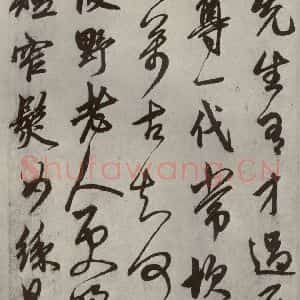 先生有才過屈
尊一代常坎
萬古知何
陵野老人更嗤
短窄鬢如絲日
Shufawang.CN